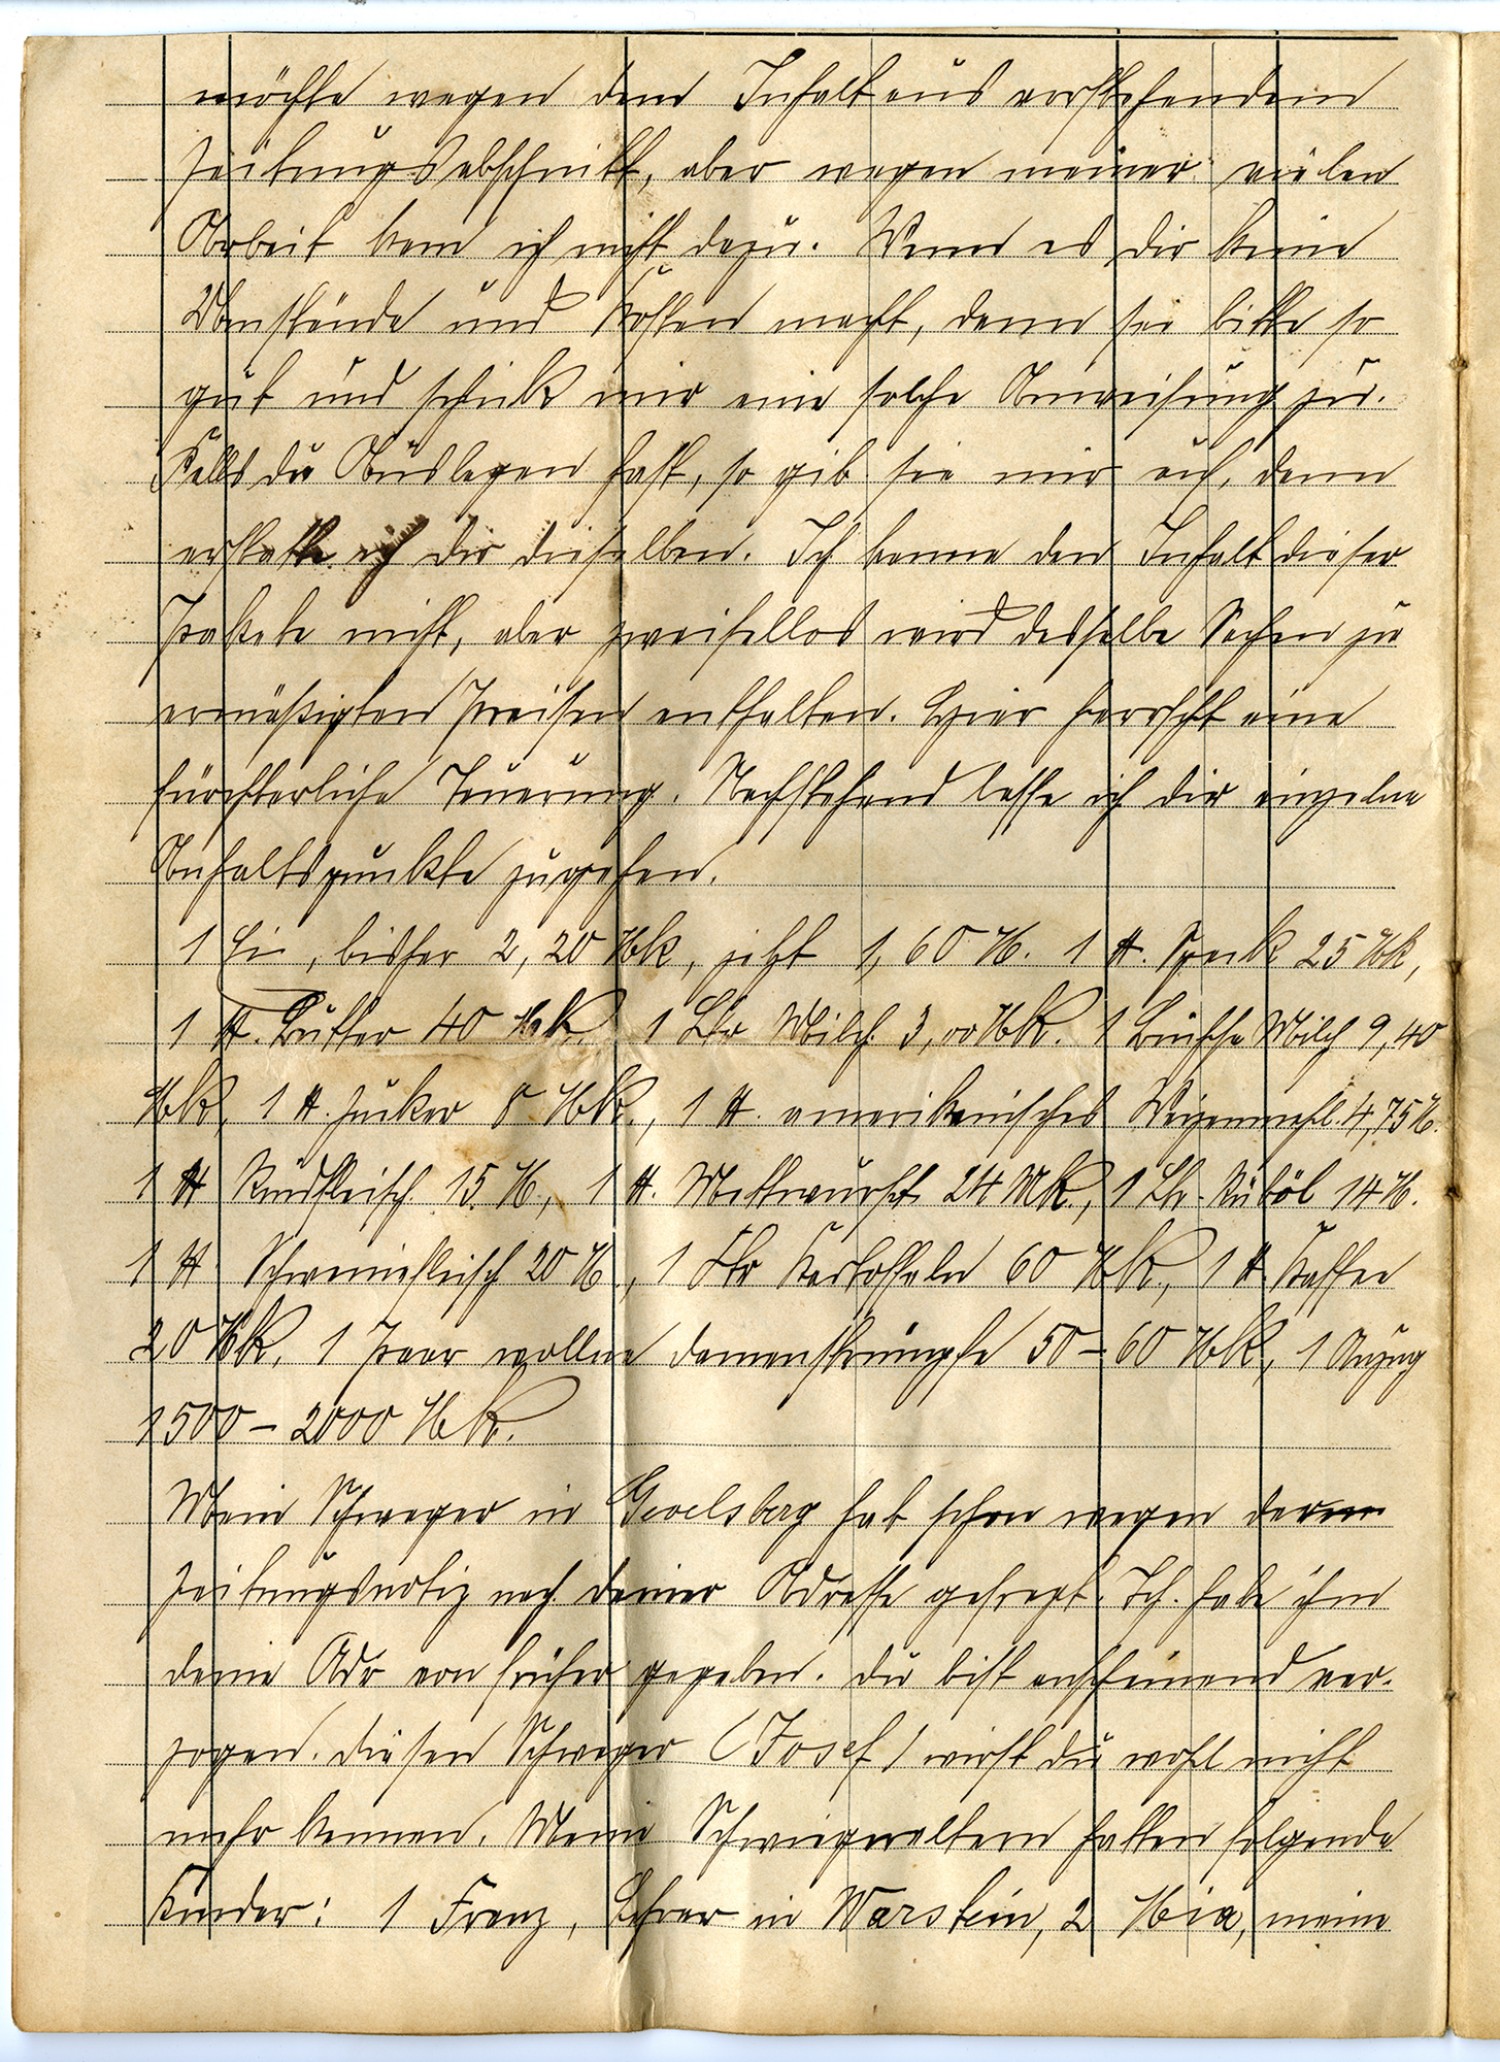 möchte wegen dem Inhalt aus vorstehendem
Zeitungsabschnitt, aber wegen meiner vielen
Arbeit kam ich nicht dazu. Wenn es dir keine
Umstände und Kosten macht, dann sei bitte so
gut und schick mir eine solche Anweisung zu.
Falls du Auslagen hast, so gib sie mir auf, dann
erstatte ich dir dieselben. Ich kenne den Inhalt dieser
Pakete nicht, aber zweifellos wird dasselbe Sachen zu
ermäßigten Preisen enthalten. Hier herrscht eine
fürchterliche Teuerung. Nachstehend lasse ich dir einzelne
Anhaltspunkte zugehen.
1 Ei, bisher 2,20 Mk, jetzt 1,60 M. 1 ℔. Speck 25 Mk,
1 ℔. Butter 40 Mk. 1 Ltr Milch 3,00 Mk. 1 Büchse Milch 9,40
Mk, 1 ℔. Zucker 8 Mk., 1 ℔. amerikanisches Weizenmehl 4,75 M.
1 ℔ Rindfleisch 15 M., 1 ℔. Mettwurst 24 Mk., 1 Ltr. Rüböl 14 M.
1 ℔ Schweinefleisch 20 M, 1 Ctr Kartoffeln 60 Mk., 1 ℔ Kaffee
20 Mk, 1 Paar wollne Damenstrümpfe 50 – 60 Mk, 1 Anzug
1500 – 2000 Mk.
Mein Schwager in Gevelsberg hat schon wegen der
Zeitungsnotiz nach deiner Adresse gefragt. Ich habe ihm
deine Adr von früher gegeben. Du bist anscheinend ver-
zogen. Diesen Schwager (Josef) wirst du wohl nicht
mehr kennen. Meine Schwiegereltern hatten folgende
Kinder: 1 Franz, Lehrer in Warstein, 2 Mia, meine